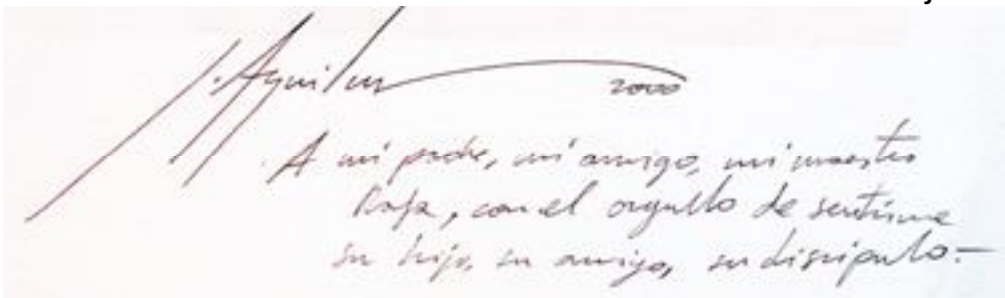 J. Aguilar 2000
A mi padre, mi amigo, mi maestro
Rafa, con el orgullo de sentirme
su hijo, su amigo, su discípulo.-